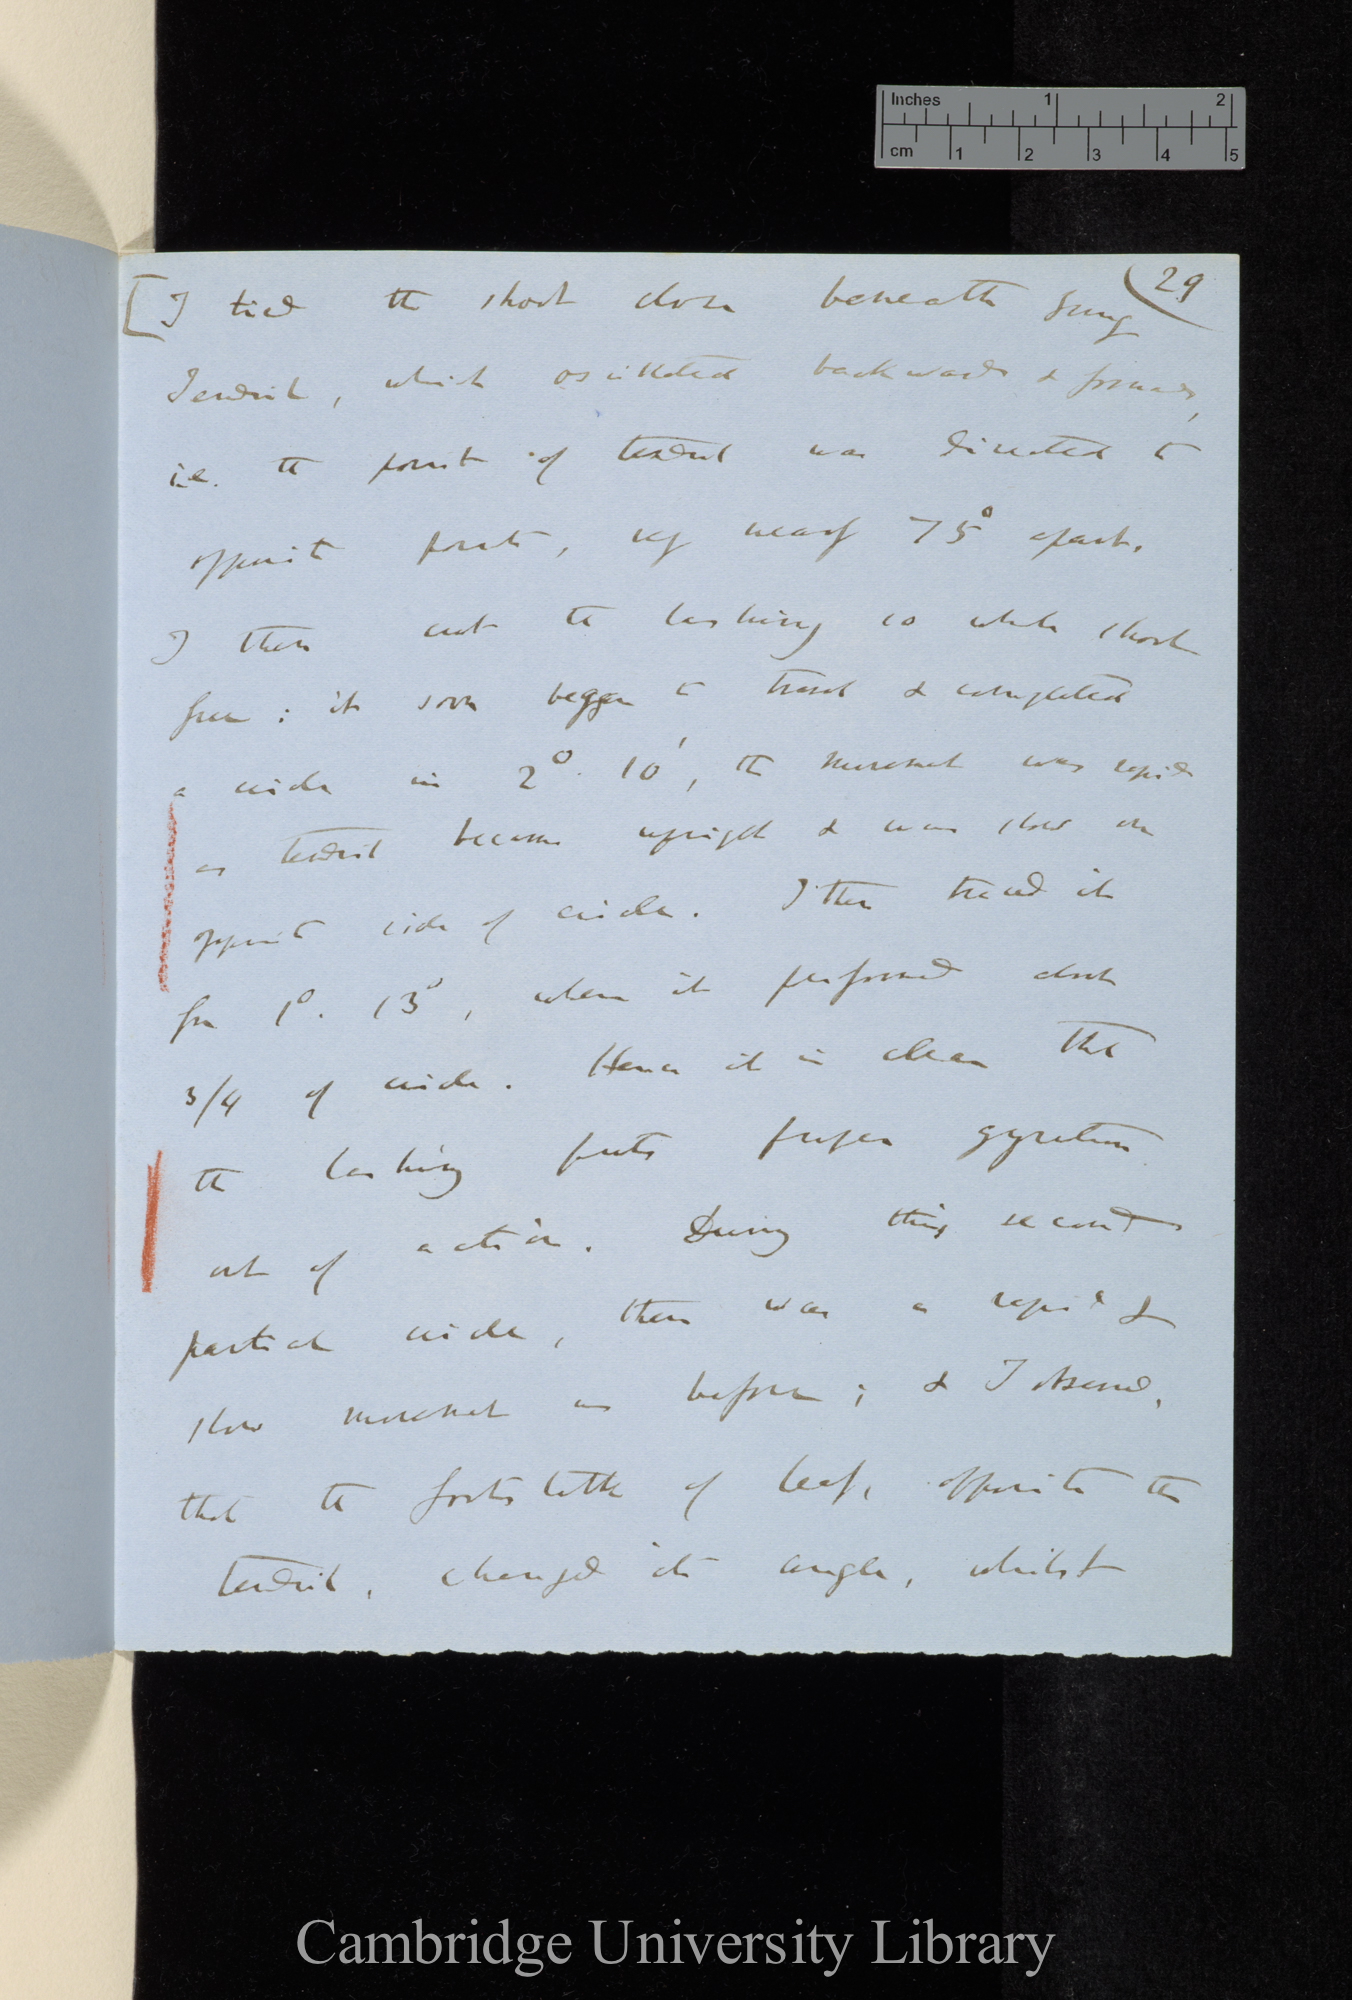 Inches 1 2
cm 1 2 3 4 5
29
[I tied the shoot close beneath young
Tendril, which oscillated backwards & forwards,
i.e. the point of tendril was directed to
opposite points, very nearly 75° apart.
I then cut the lashing so whole shoot
free; it soon began to travel & completed
a circle in 2°. 10', the movement was rapid
as tendril became upright & was slow on
opposite side of circle. I then traced it
for 1°. 13°, when it performed about
3/4 of circle. Hence it is clear that
the lashing puts proper gyration
out of action. During this second
partial circle, there was a rapid &
slow movement as before; & I observed,
that the footstalk of leaf, opposite the
tendril, changed its angle, whilst
Cambridge University Library